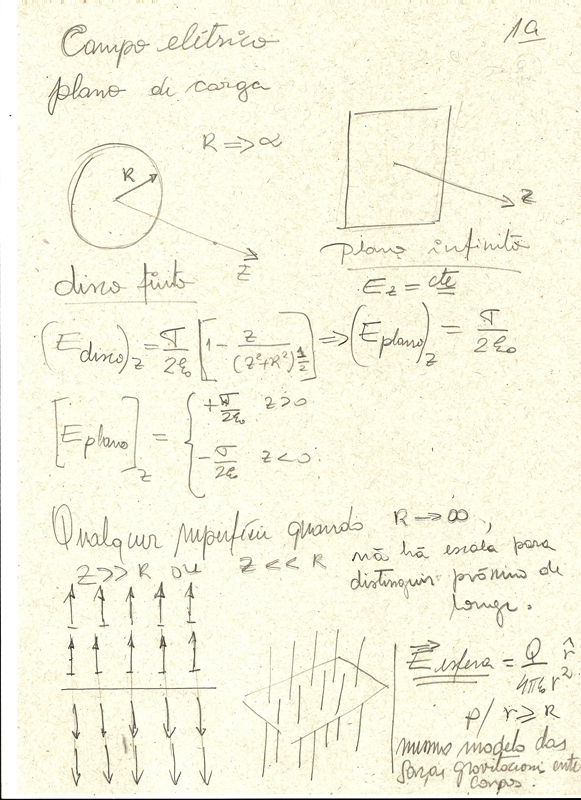 Campo elétrico
1a
plano de carga
R => ∝
R
z
z
disco finito
plano infinito
E_z = cte
(E disco)_z = σ/2ε₀ [1 - z/(z²+R²)^½] => (E plano)_z = σ/2ε₀
[E plano]_z = { +σ/2ε₀ z>0
-σ/2ε₀ z<0
Qualquer superfície quando R → ∞,
z >> R ou z << R não há escala para
distinguir próximo de
longe.
E esfera = Q/4πε₀r² r̂
p/ r ≥ R
mesmo modelo das
forças gravitacioni entre
corpos.